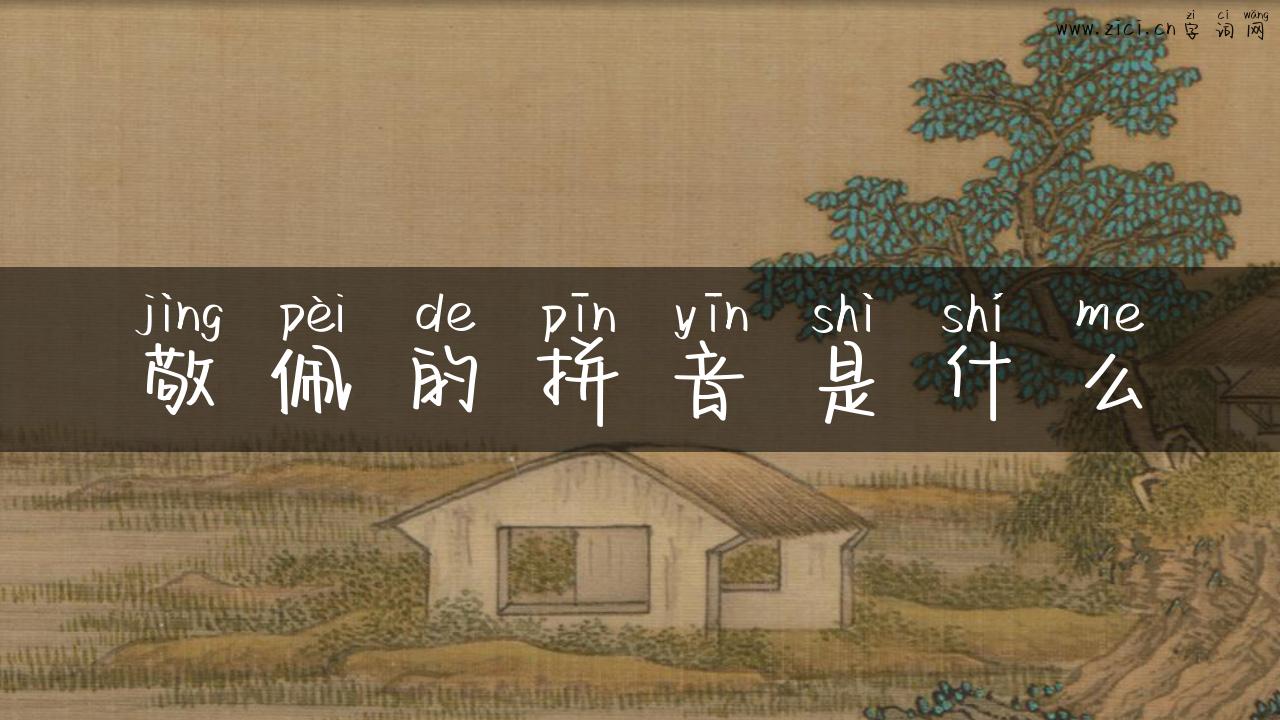 zì cí wǎng
www.zici.cn 字词网
jìng pèi de pīn yīn shì shí me
敬佩的拼音是什么